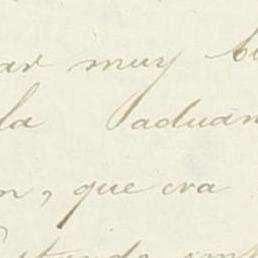 ar muy b
la aduan
n, que era